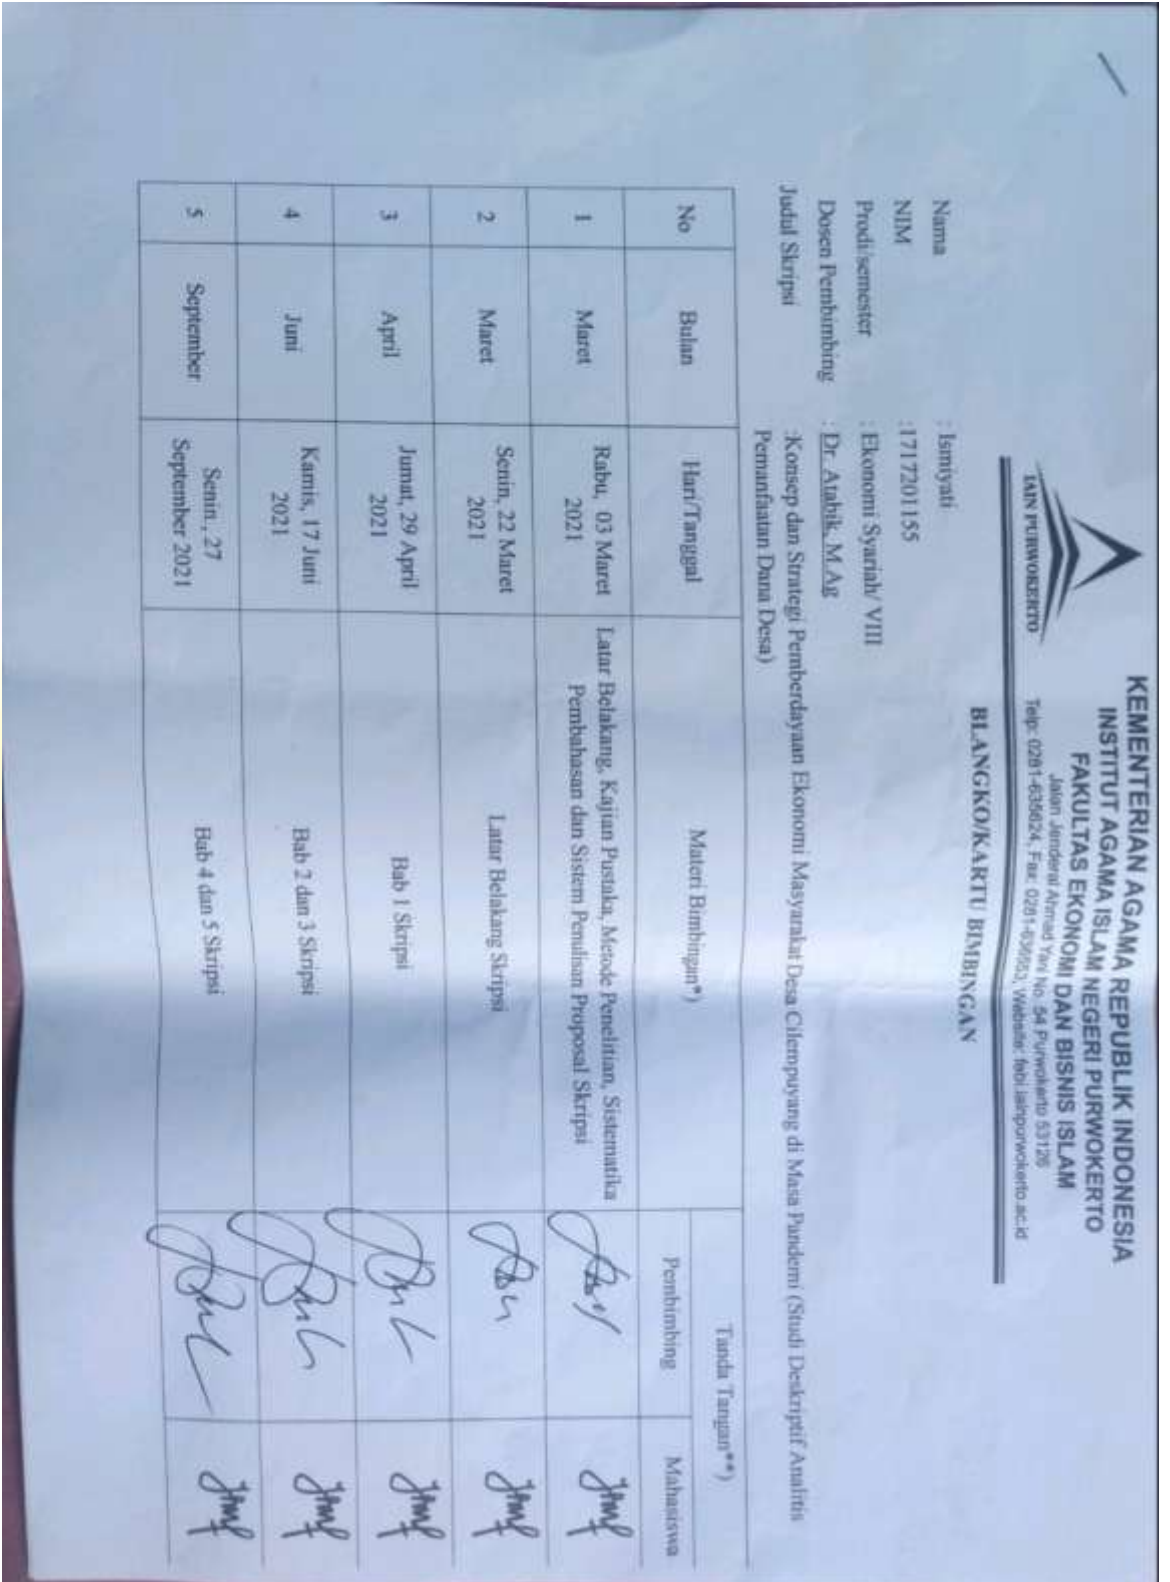 KEMENTERIAN AGAMA REPUBLIK INDONESIA
INSTITUT AGAMA ISLAM NEGERI PURWOKERTO
FAKULTAS EKONOMI DAN BISNIS ISLAM
Jalan Jenderal Ahmad Yani No. 54 Purwokerto 53126
Telp: 0281-635624, Fax: 0281-636553, Website: febi.iainpurwokerto.ac.id
IAIN PURWOKERTO
BLANGKO/KARTU BIMBINGAN
Nama : Ismiyati
NIM :1717201155
Prodi/semester : Ekonomi Syariah/ VIII
Dosen Pembimbing : Dr. Atabik, M.Ag
Judul Skripsi :Konsep dan Strategi Pemberdayaan Ekonomi Masyarakat Desa Cilempuyang di Masa Pandemi (Studi Deskriptif Analitis
Pemanfaatan Dana Desa)
No Bulan Hari/Tanggal Materi Bimbingan*) Tanda Tangan**)
Pembimbing Mahasiswa
1 Maret Rabu, 03 Maret Latar Belakang, Kajian Pustaka, Metode Penelitian, Sistematika
2021 Pembahasan dan Sistem Penulisan Proposal Skripsi
2 Maret Senin, 22 Maret Latar Belakang Skripsi
2021
3 April Jumat, 29 April Bab 1 Skripsi
2021
4 Juni Kamis, 17 Juni Bab 2 dan 3 Skripsi
2021
5 September Senin , 27 Bab 4 dan 5 Skripsi
September 2021